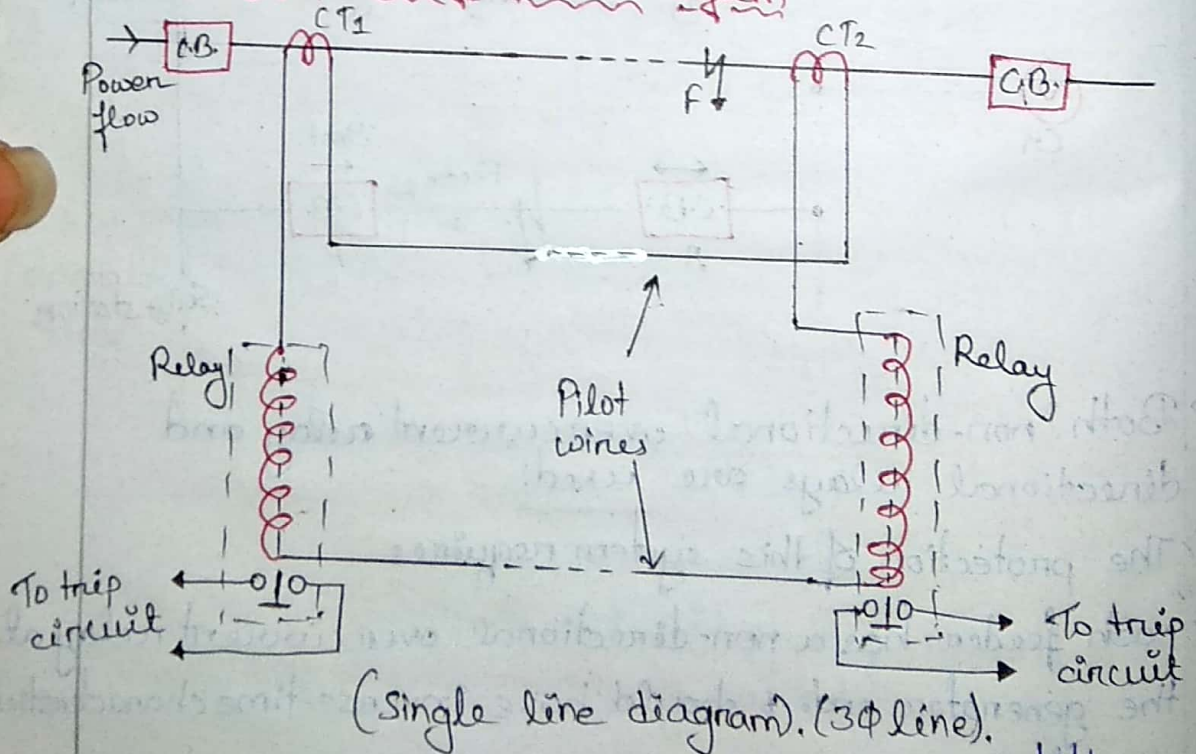 CT1
CT2
C.B.
C.B.
Power
flow
F
Relay
Relay
Pilot
wires
To trip
circuit
To trip
circuit
(Single line diagram). (3Φ line).